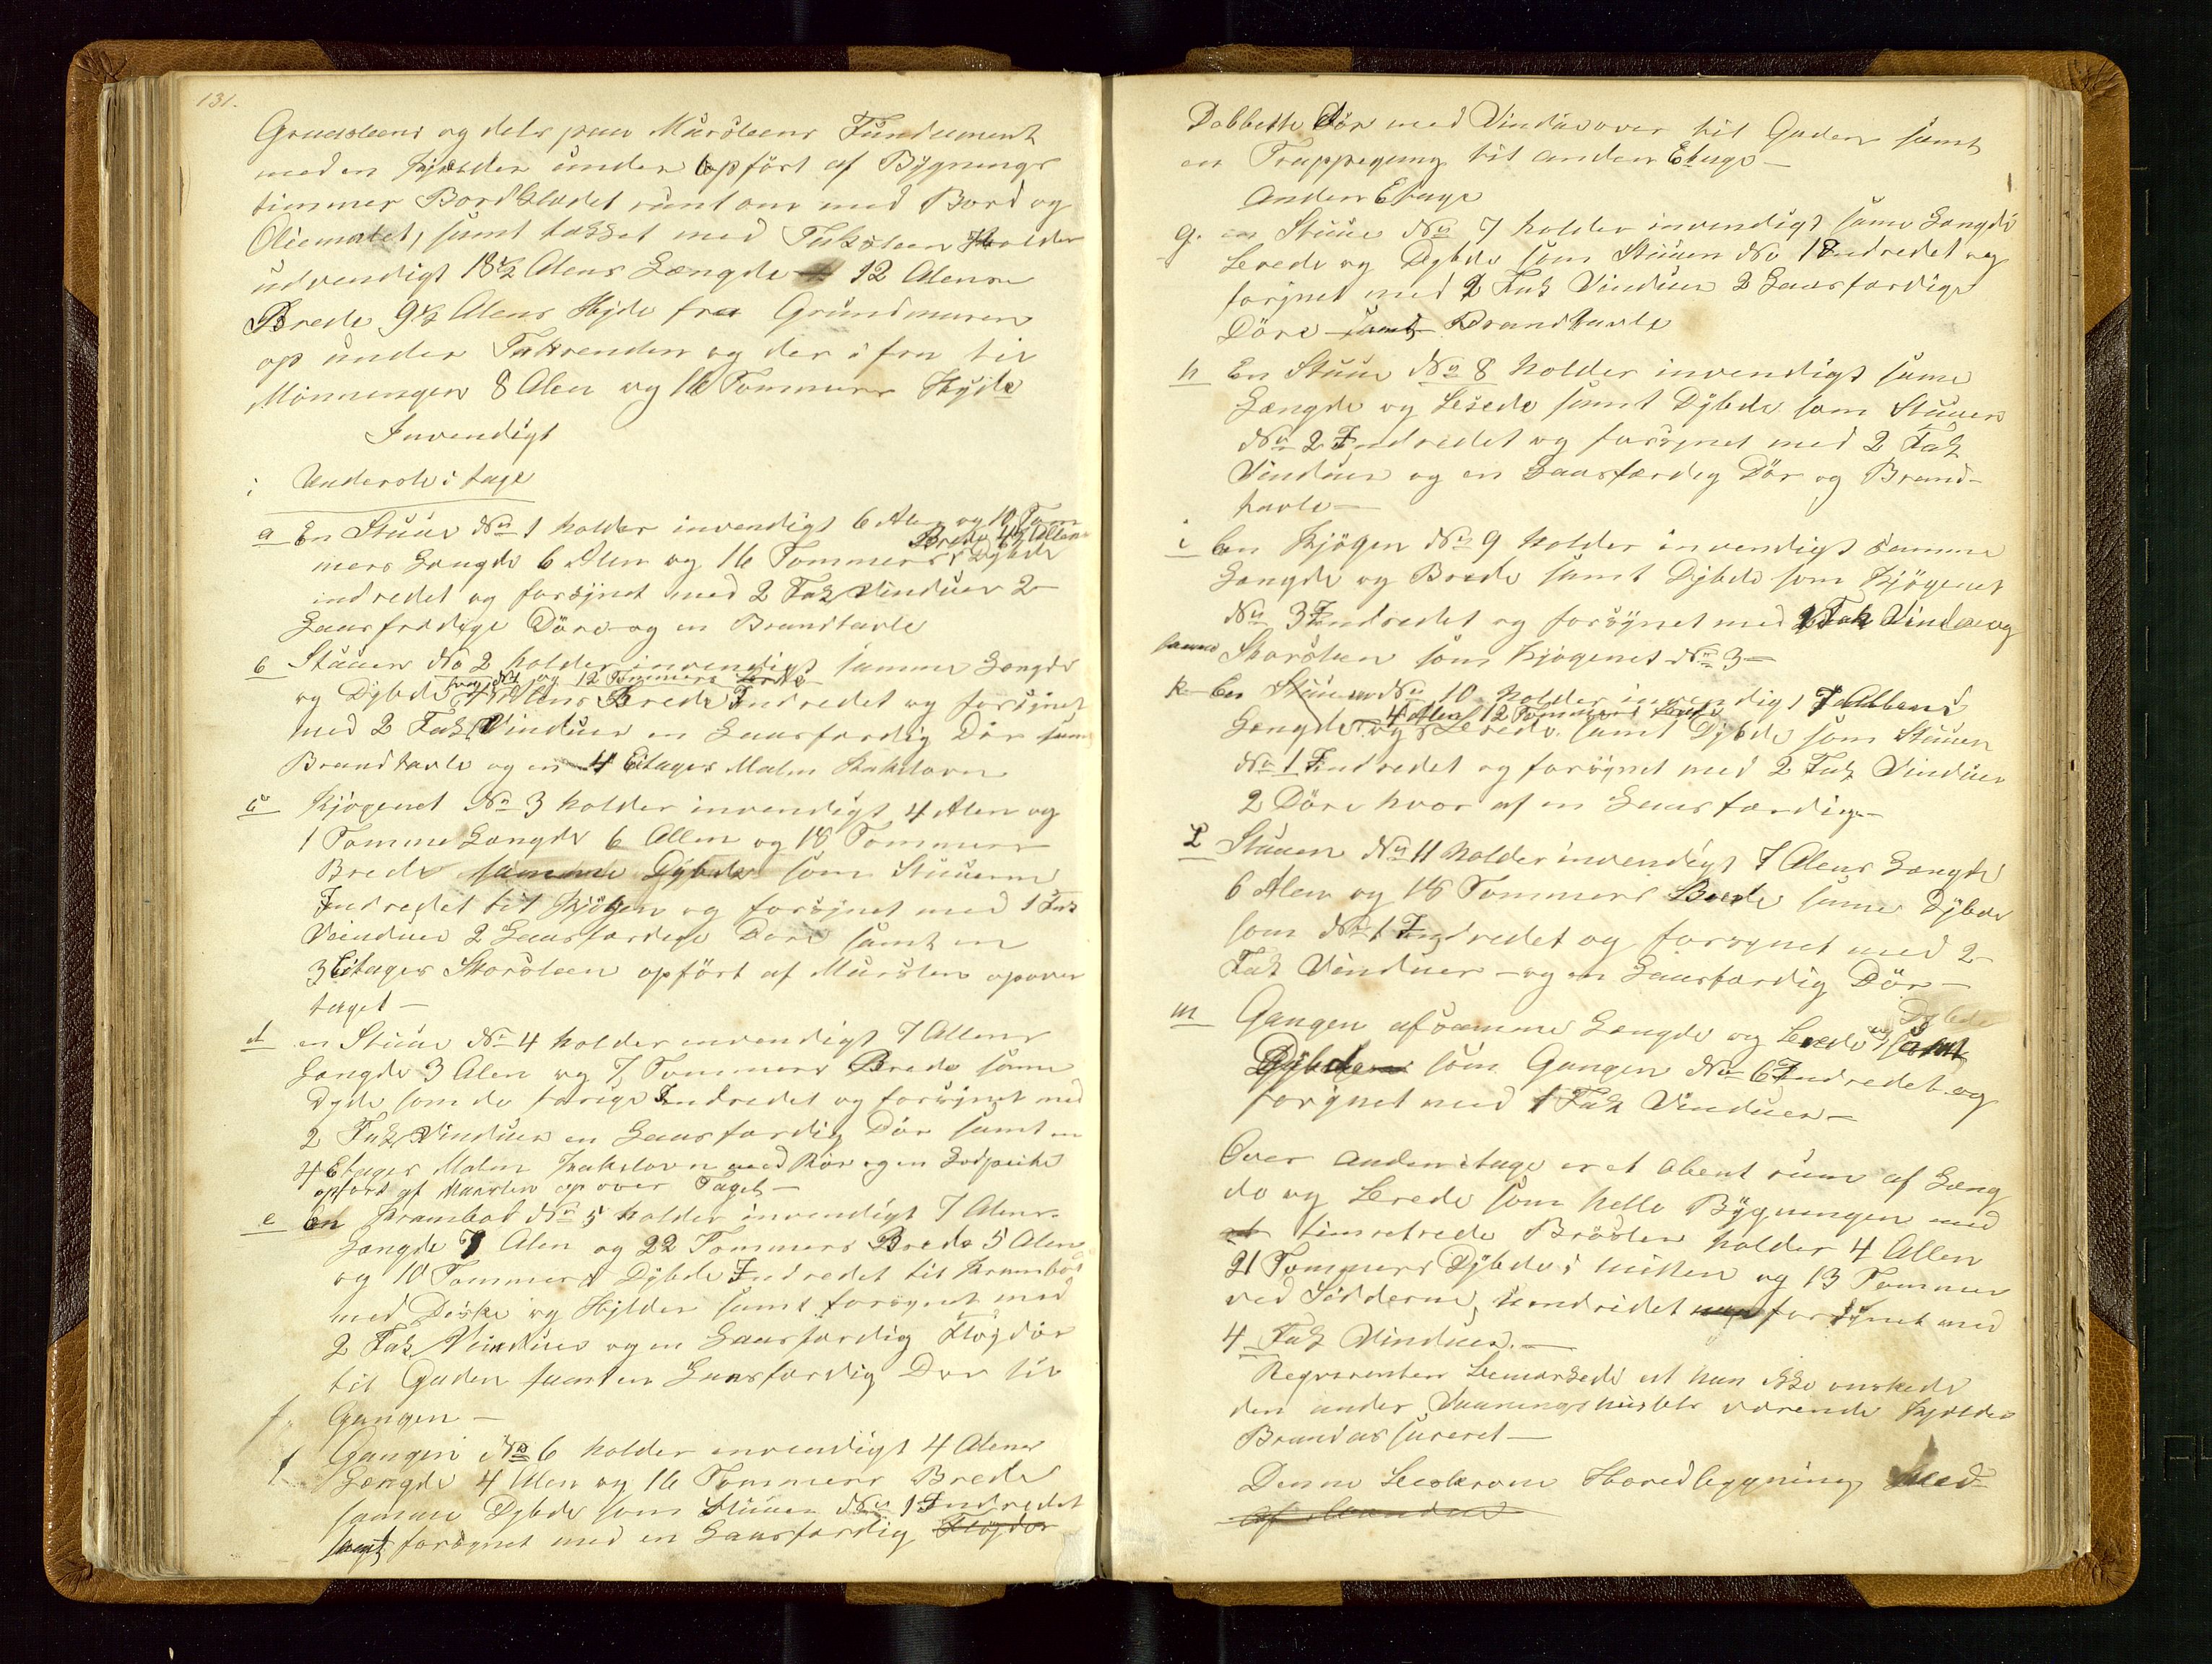 131.
Graasteens og dels paa Mursteens Fundament
med en Kjælder under Opført af Bygnings
timmer Bordklædet rundt om med Bord og
Oliemalet, samt takket med Taksteen Holder
udvendigt 18½ Alens Længde 12 Alens
Brede 9½ Alens Høide fra Grundmuren
op under Takrenden og der i fra til
Mønningen 8 Alen og 16 Tommers Høide
Invendigt
i Underste Etage
a En Stuue No 1 holder invendigt 6 Alen og 10 Tom
Brede 4½ Allen
mers Længde 6 Alen og 16 Tommers Dybde
indredet og forsynet med 2 Fak Vinduer 2
Laasfærdige Døre og en Brandtavle
b Stuuen No 2 holder invendigt samme Længde
som No 1 og 12 Tommers
og Dybde 4 Alens Brede Indredet og forsynet
med 2 Fak Vinduer en Laasfærdig Dør samt
Brandtavle og en 4 Etages Malm Kakelovn
c Kjøgenet No 3 holder invendigt 4 Alen og
1 Tomme Længde 6 Allen og 18 Tommers
Brede samme Dybde som Stuuerne
Indredet til Kjøgen og forsynet med 1 Fak
Vinduer 2 Laasfærdige Døre samt en
3 Etages Skorsteen opført af Mursten op over
taget —
d en Stuue No 4 holder invendigt 7 Allens
Længde 3 Alen og 7 Tommers Brede samme
Dyde som de forige Indredet og forsynet med
2 Fak Vinduer en Laasfærdig Dør samt en
4 Etages Malm Kakelovn med Rør og en
opført af Mursten op over Taget —
e En Krambod No 5 holder invendigt 7 Alens
Længde 7 Alen og 22 Tommers Brede 5 Alen
og 10 Tommers Dybde Indredet til Krambod
med Diske og Hylder samt forsynet med
2 Fak Vinduer og en Laasfærdig Fløidør
til Gaden samt en Laasfærdig Dør til
f. Gangen —
f Gangen No 6 holder invendigt 4 Alens
Længde 4 Alen og 16 Tommers Brede
samme Dybde som Stuuen No 1 Indredet
samt forsynet med en Laasfærdig Fløjdør
Dobbelte Dør med Vindue over til Gaden samt
en Trappegang til anden Etage —
Anden Etage
g. en Stuue No 7 holder invendigt same Længde
Brede og Dybde som Stuuen No 1 Indredet og
forsynet med 2 Fak Vinduer 2 Laasfærdige
Døre samt Brandtavle
h En Stuue No 8 holder invendigt same
Længde og Brede samt Dybde som Stuuen
No 2 Indredet og forsynet med 2 Fak
Vinduer og en Laasfærdig Dør og Brand-
tavle —
i En Kjøgen No 9 holder invendigt samme
Længde og Brede samt Dybde som Kjøgenet
No 3 Indredet og forsynet med 2 Fak Vindue og
samme Skorsteen som Kjøgenet No 3 —
k En Stuue No 10 holder invendigt 7 Allens
4 Alen 12 Tommers
Længde og Brede samt Dybde som Stuuen
No 1 Indredet og forsynet med 2 Fak Vinduer
2 Døre hvor af en Laasfærdig —
L Stuuen No 11 holder invendigt 7 Alens Længde
6 Alen og 18 Tommers Brede same Dybde
som No 1 Indredet og forsynet med 2
Fak Vinduer — og en Laasfærdig Dør —
m Gangen af samme Længde og Brede og Dybde samt
Dybde som Gangen No 6 Indredet og
forsynet med 1 Fak Vinduer —
Over anden etage er et Abent rum af Læng
de og Brede som hele Bygningen med
et Brøsten holder 4 Allen
21 Tommers Dybde i mitten og 13 Tommer
ved Sidderne, Uindredet men forsynet med
4 Fak Vinduer. —
Reqvirenten Bemærkede at han ikke ønskede
den under Vaaningshuset værende Kjelder
Brandassureret —
Denne Beskrevne Hovedbygning